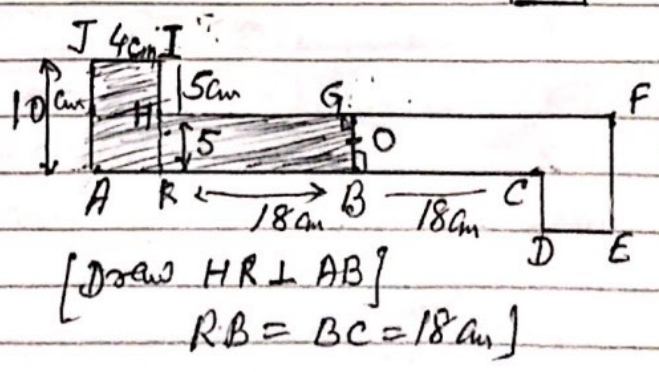 J 4cm I
10 cm
H
5cm
G
F
5
O
A R 18cm B 18cm C
D E
[Draw HR ⊥ AB]
RB = BC = 18cm]